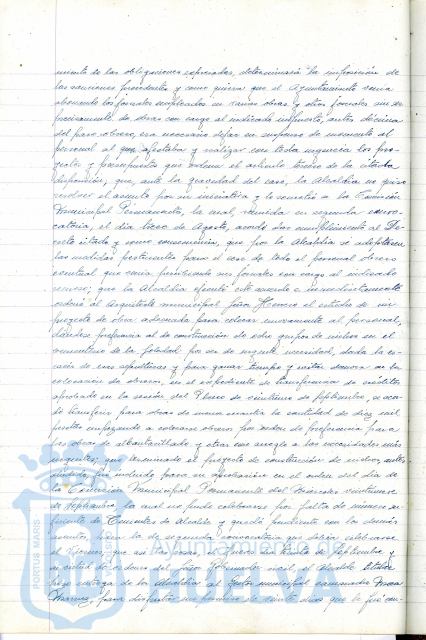 miento de las obligaciones expresadas, determinaria la imposición de
las sanciones procedentes y como quiera que el Ayuntamiento venia
abonando los jornales empleados en varias obras y otros jornales sin
de obras con cargo al indicado impuesto, antes décima
del paro obrero, era necesario dejar en suspenso de momento al
personal al que afectaba y realizar con toda urgencia los pro-
yectos y presupuestos que ordena el articulo tercero de la citada
disposición; que, ante la gravedad del caso, la Alcaldia no quiso
resolver el asunto por su iniciativa y lo sometió a la Comisión
Municipal Permanente, la cual, reunida en segunda convo-
catoria, el dia de Agosto, acordó dar cumplimiento al De-
creto citado y como consecuencia, que por la Alcaldia se adoptasen
las medidas pertinentes para el cese de todo el personal obrero
eventual que venia percibiendo sus jornales con cargo al indicado
recurso; que la Alcaldia ejecutó este acuerdo e inmediatamente
ordenó al Arquitecto municipal Señor Herrero el estudio de un
proyecto de obra adecuada para colocar nuevamente al personal,
dándose preferencia al de construcción de ocho grupos de nichos en el
cementerio de la Soledad por ser de urgente necesidad, dada la es-
casez de esas sepulturas y para ganar tiempo y evitar demora en la
colocación de obreros, en el expediente de transferencia de créditos
aprobado en la sesión del Pleno de veintiuno de Septiembre, se acor-
dó transferir para obras de nueva planta la cantidad de diez mil
pesetas empezando a colocarse obreros por orden de preferencia para
las obras de alcantarillado y otras con arreglo a las necesidades más
urgentes; que terminado el proyecto de construcción de nichos,
fué incluido para su aprobación en el orden del dia de
la Comisión Municipal Permanente del miércoles veintinueve
de Septiembre, la cual no pudo celebrarse por falta de número su-
ficiente de Tenientes de Alcalde y quedó pendiente con los demás
asuntos, para la de segunda convocatoria que debia celebrarse
el viernes; que asi las cosas, el jueves treinta de Septiembre y
en virtud de orden del Señor Gobernador civil, el Alcalde
hizo entrega de la Alcaldia al Gestor municipal camarada
para disfrutar un permiso de veinte dias que le fué con-
PORTUS MARIS
Ayuntamiento de